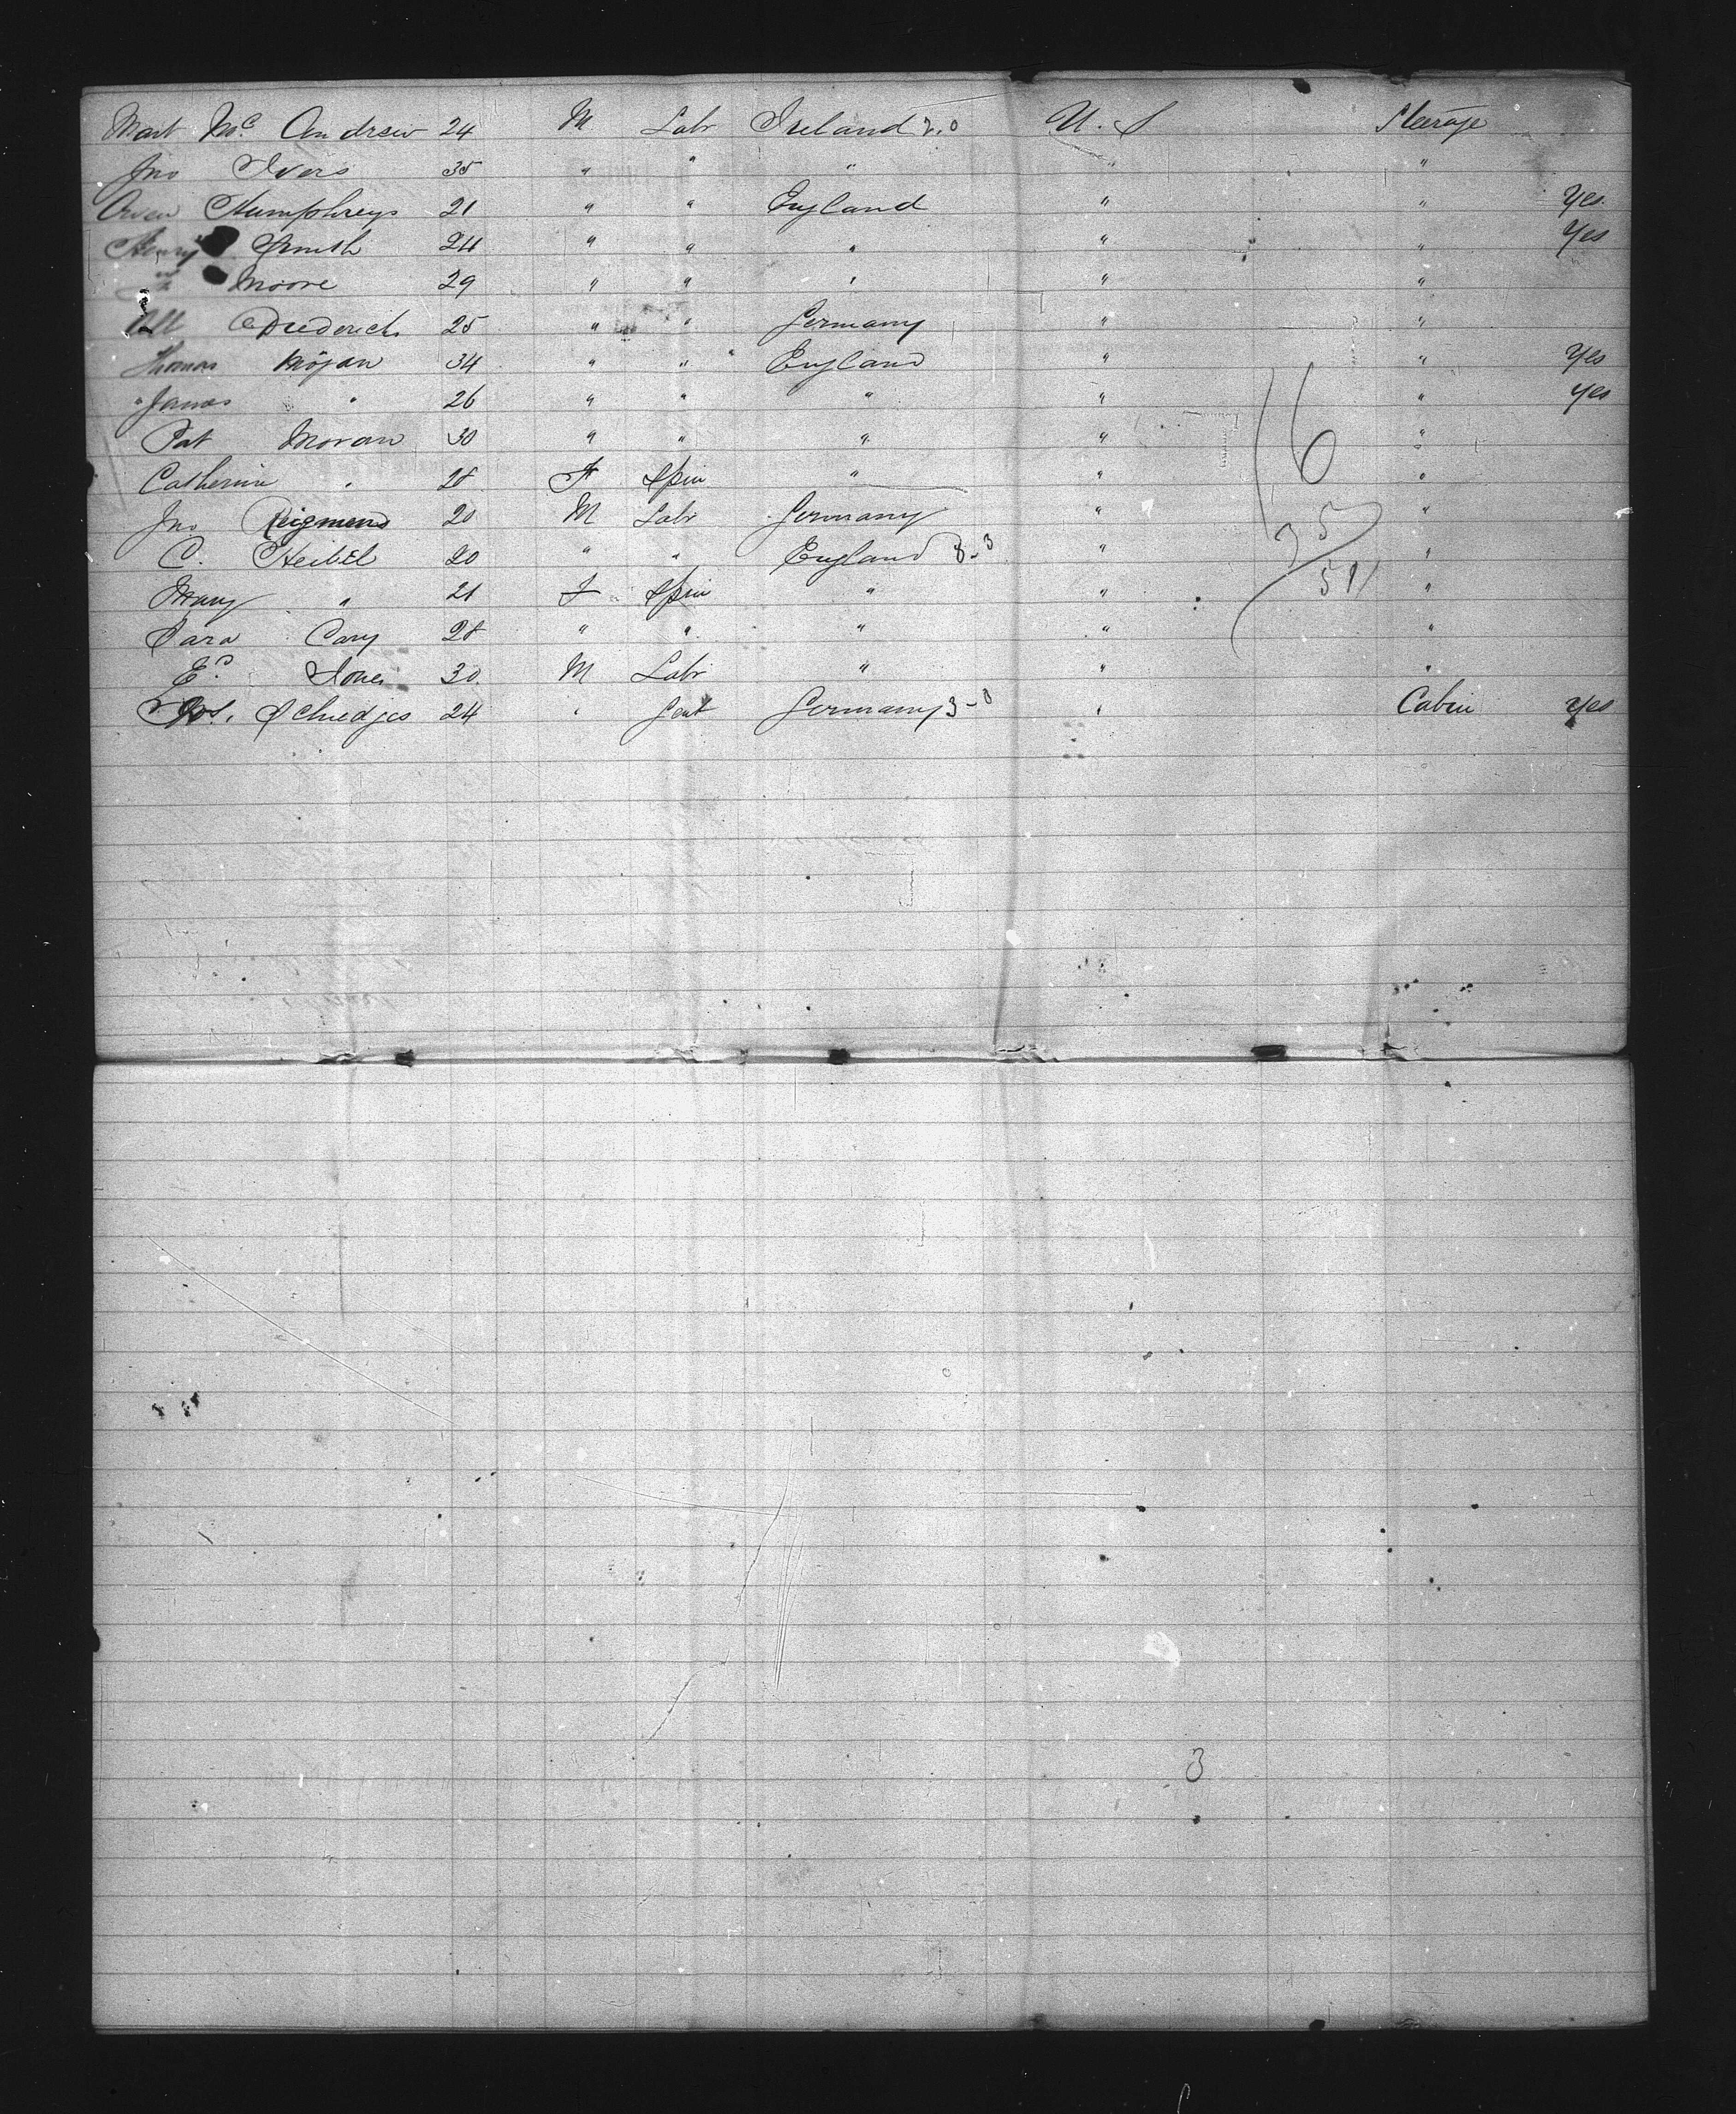 Mart Mc Andrew 24 M Labr Ireland 2.0 U. S Steerage
Jno Ivers 35 " " " " "
Owen Humphreys 21 " " England " " Yes
Henry Smith 24 " " " " " Yes
Moore 29 " " " " "
Diederich 25 " " Germany " "
Thomas Mojan 34 " " England " " Yes
" James " 26 " " " " " Yes
Pat Moran 30 " " " " "
16
Catherine " 28 F Spin " " "
Jno Reigmens 20 M Labr Germany " "
35
C. Heibel 20 " " England 8-3 " "
51
Mary " 21 F Spin " " "
Sara Cary 28 " " " " "
Ed Jones 30 M Labr " " "
Jos. Schuedjes 24 " Gent Germany 3-0 " Cabin Yes
3